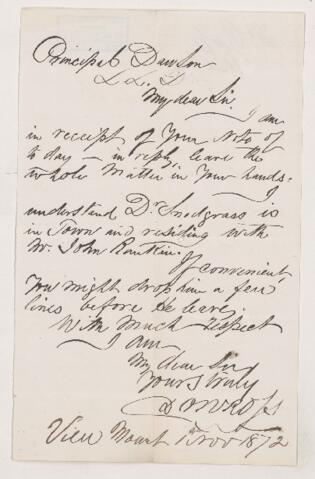 Principal Dawson
L L D
My dear Sir.
I am
in receipt of Your Note of
to day – in reply, leave the
whole Matter in Your hands.
I
understand Dr Snodgrass is
in Town and residing with
Mr. John Rankin.
If convenient,
You might drop him a few
lines, before He leave.
With Much respect
I am
My dear Sir
Yours truly
View Mount 1 Nov 1872